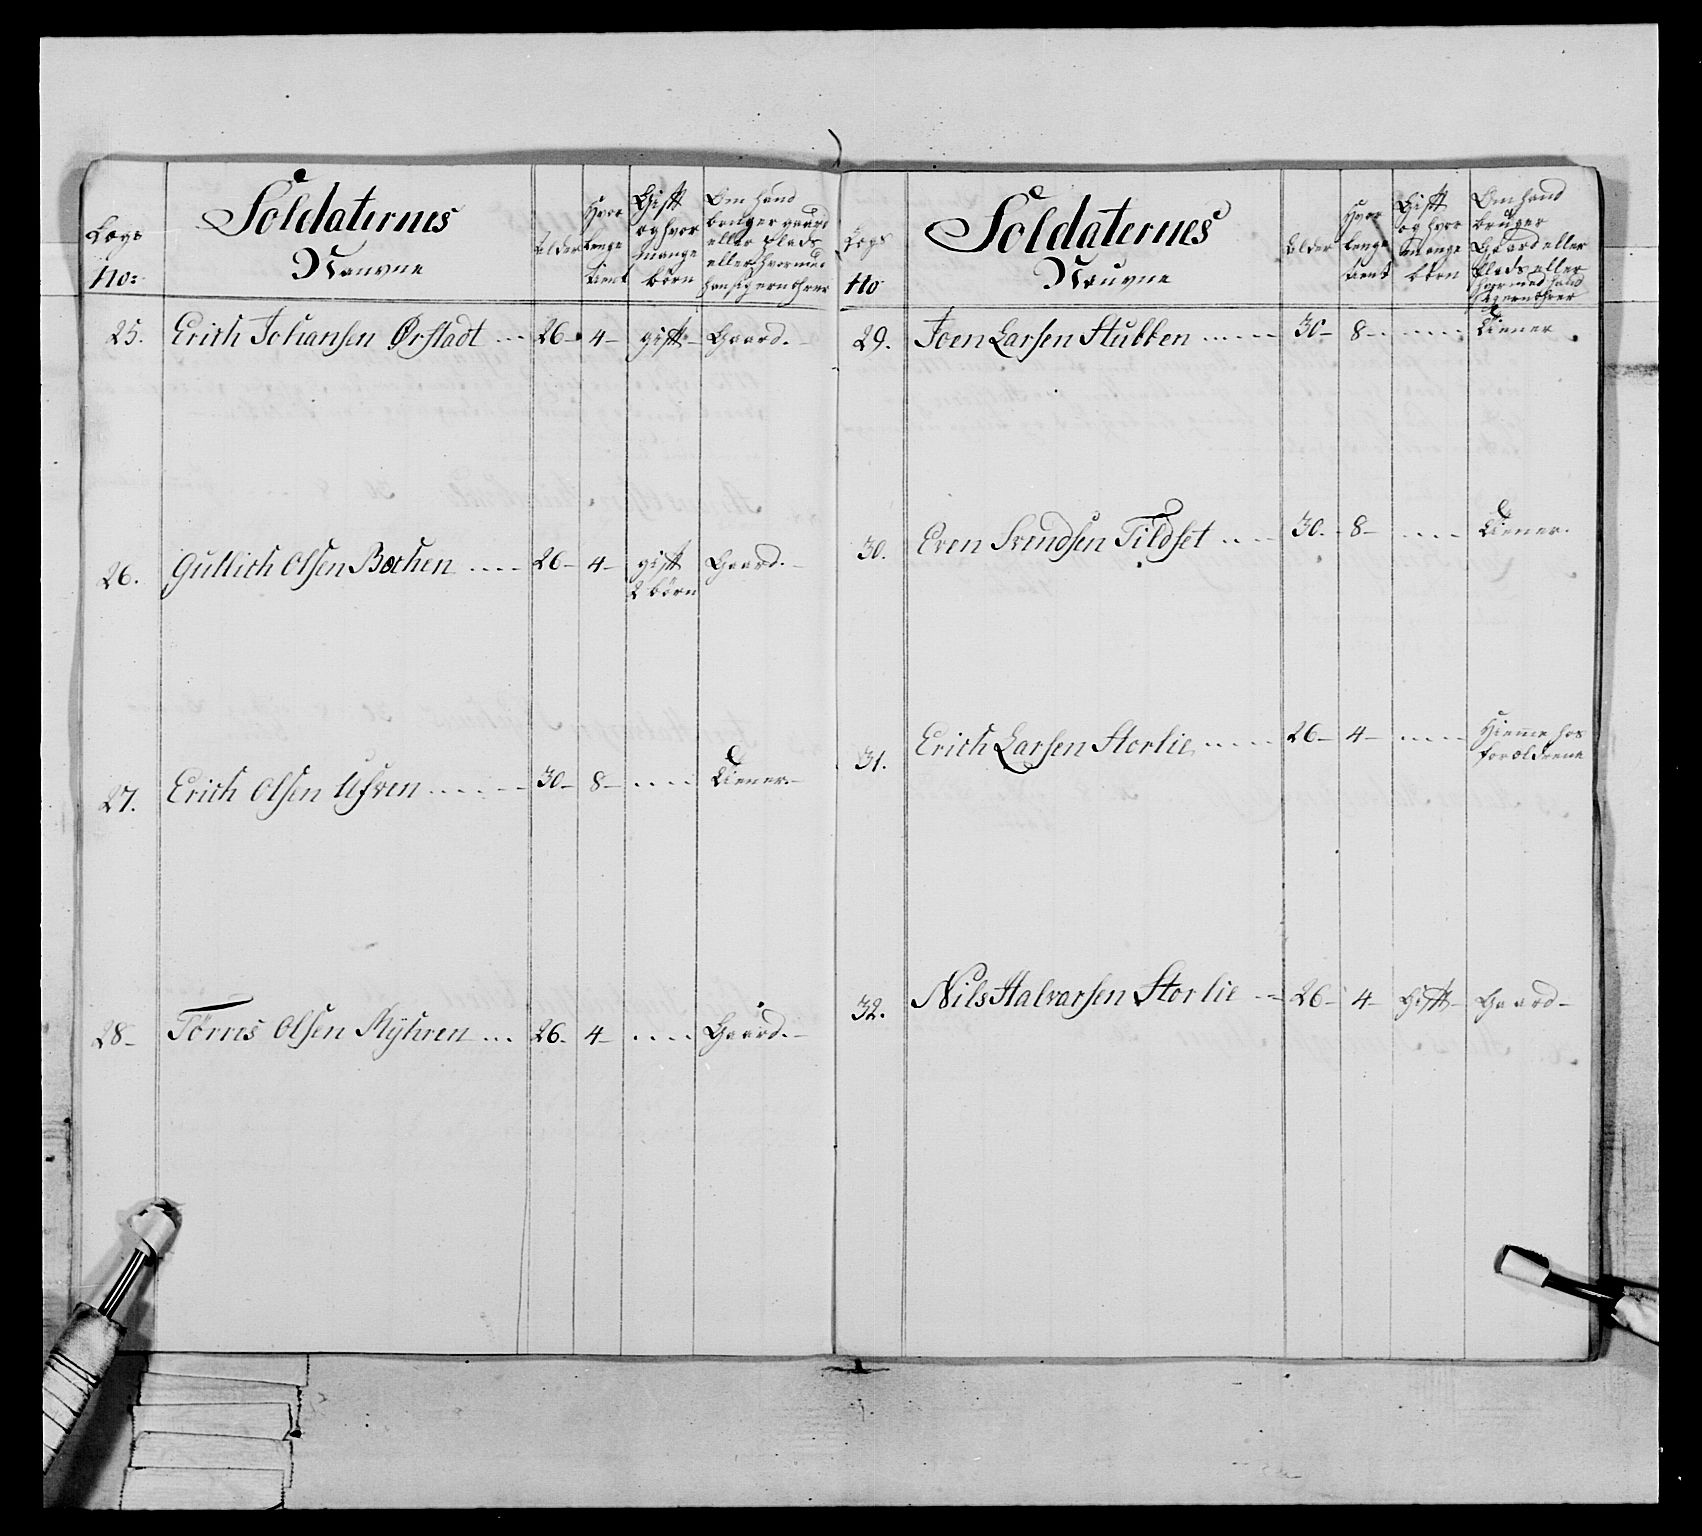 Lægs
No:
Soldaternes
Naufne
Alder
Hvor
lenge
tient
Gift
og hvor
mange
börn
Om hand
bruger gaard
eller Plads
eller hvormed
han sig ernöhrer
25. Erich Johansen Ørstadt 26 4 gift Gaard.
26. Gullich Olsen Bochen 26 4 gift Gaard.
2 börn
27. Erich Olsen Uhren 30 8 Tiener
28 Törris Olsen Myhren 26 4 Gaard.
Lægs
No
Soldaternes
Naufne
Alder
Hvor
lenge
tient
Gift
og hvor
mange
börn
Om hand
bruger
Gaard eller
Plads eller
hvormed hand
sig ernöhrer
29. Joen Larsen Stubben 30 8 Tiener
30. Even Svendsen Tildset 30 8 Tiener.
31. Erich Larsen Storlie 26 4 Hiemme hos
forældrene
32. Nils Halvarsen Storlie 26 4 Gift Gaard